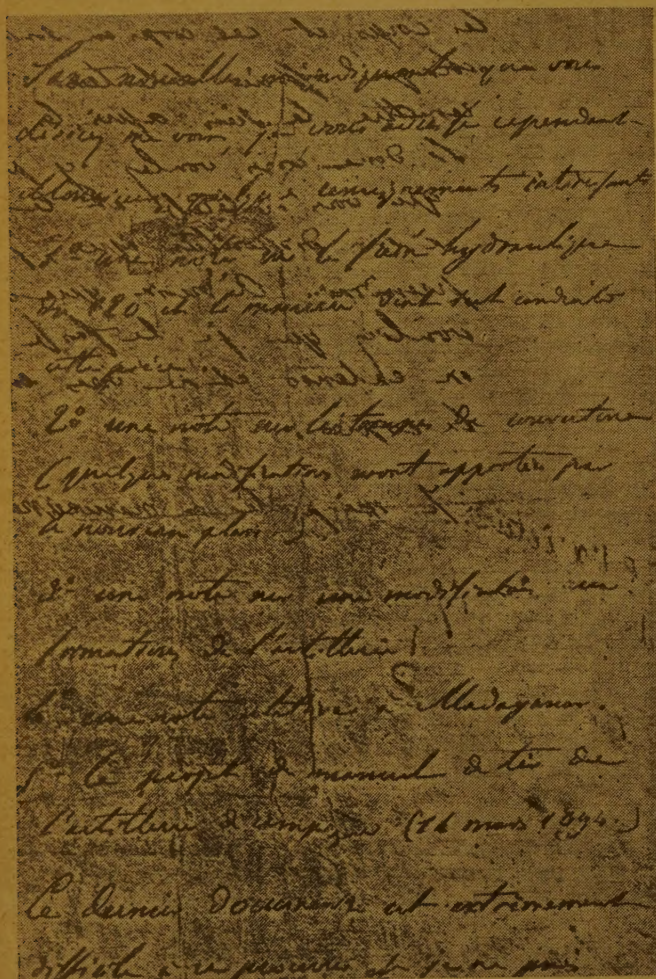 Sans nouvelles m'indiquant que vous
désirez me voir, je vous adresse cependant
Monsieur quelques renseignements intéressants
1° une note sur le frein hydraulique
du 120 et la manière dont s'est conduite
cette pièce.
2° une note sur les troupes de couverture
(quelques modifications seront apportées par
le nouveau plan.)
3° une note sur une modification aux
formations de l'artillerie:
4° une note relative à Madagascar.
5° le projet de manuel de tir de
l'artillerie de campagne (14 mars 1894.)
Ce dernier document est extrêmement
difficile à se procurer et je ne puis